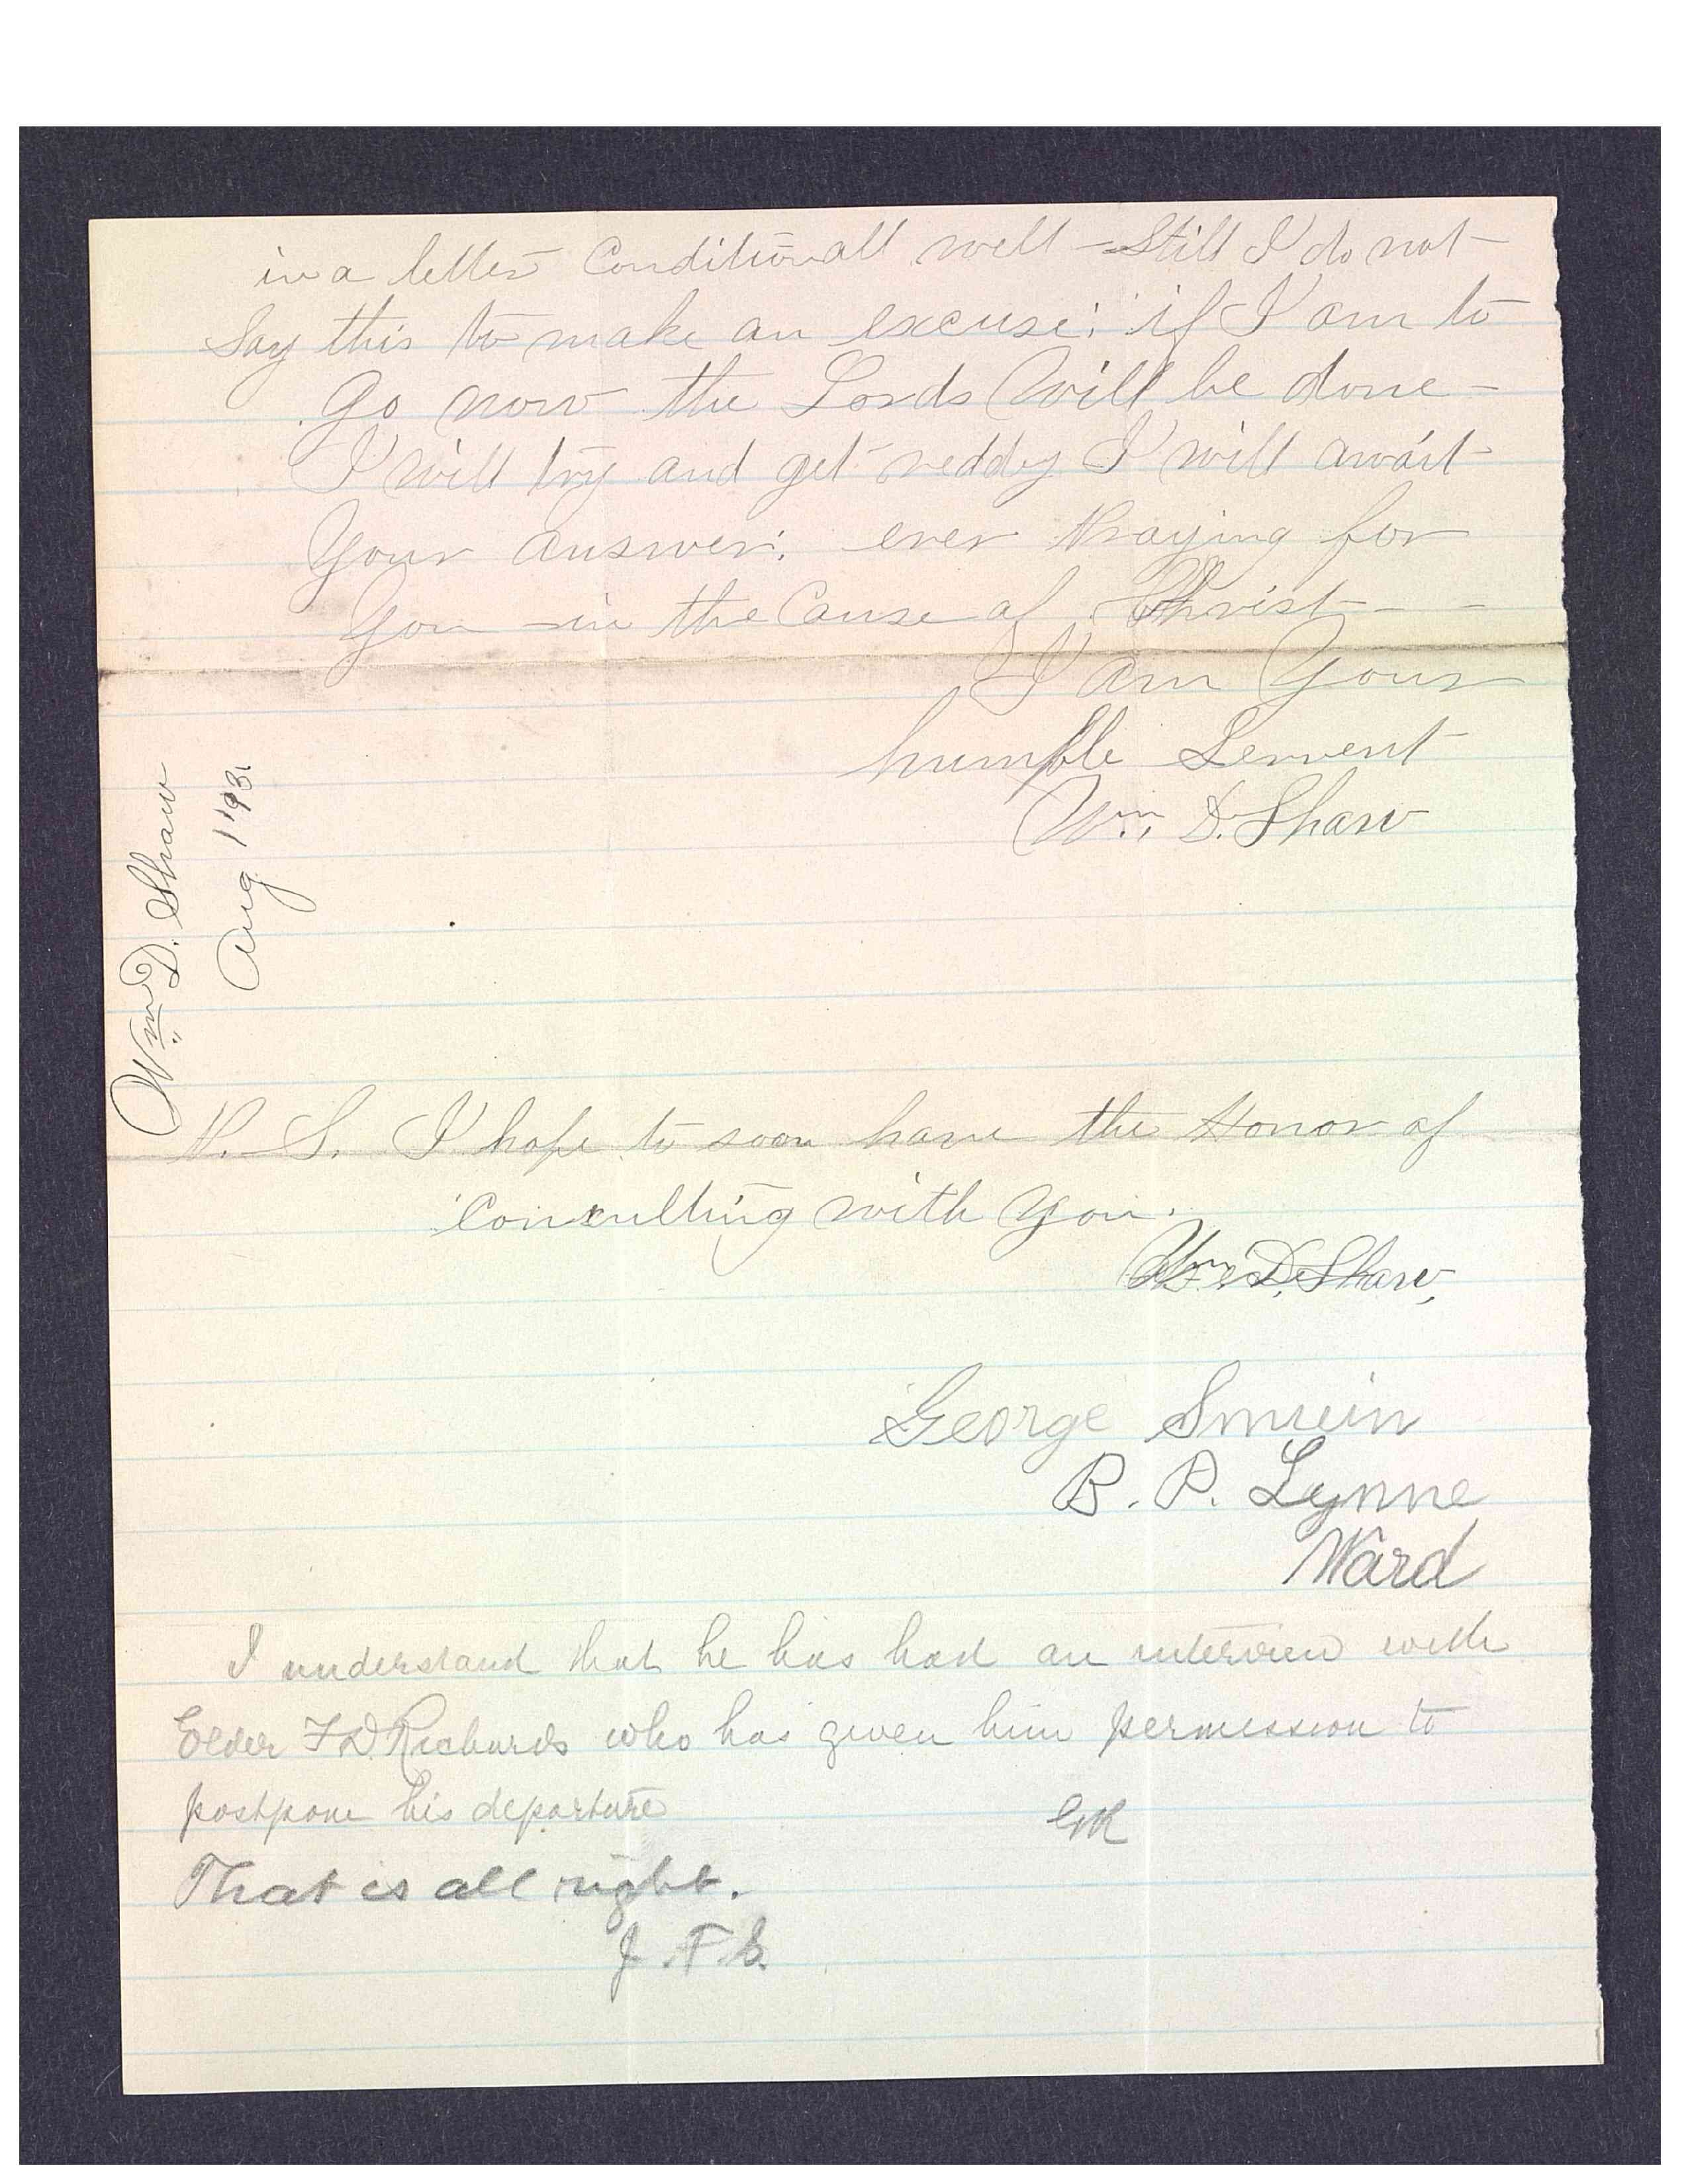 in a better Condition all well - Still I do not
Say this to make an excuse; if I am to
go now the Lords Will be done -
I will try and get reddy I will await
Your answer; ever Praying for
You in the Cause of Christ - -
I am Your
humble Servent
Wm. D. Shaw
Wm. D. Shaw
Aug 1 '93.
P. S. I hope to soon have the Honor of
Consulting with You.
Wm. D. Shaw,
George Smuin
B. P. Lynne
Ward
I understand that he has had an interview with
Elder F D. Richards who has given him permission to
postpone his departure
GR
That is all right.
J. F. S.